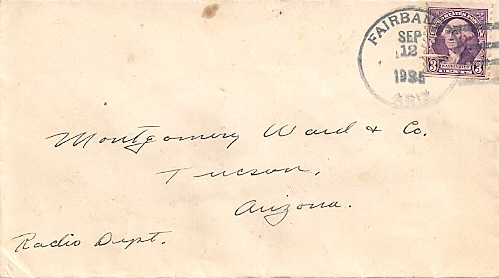 FAIRBANK
SEP
12
1935
ARIZ
3 WASHINGTON 3
Montgomery Ward & Co.
Tucson,
Arizona.
Radio Dept.